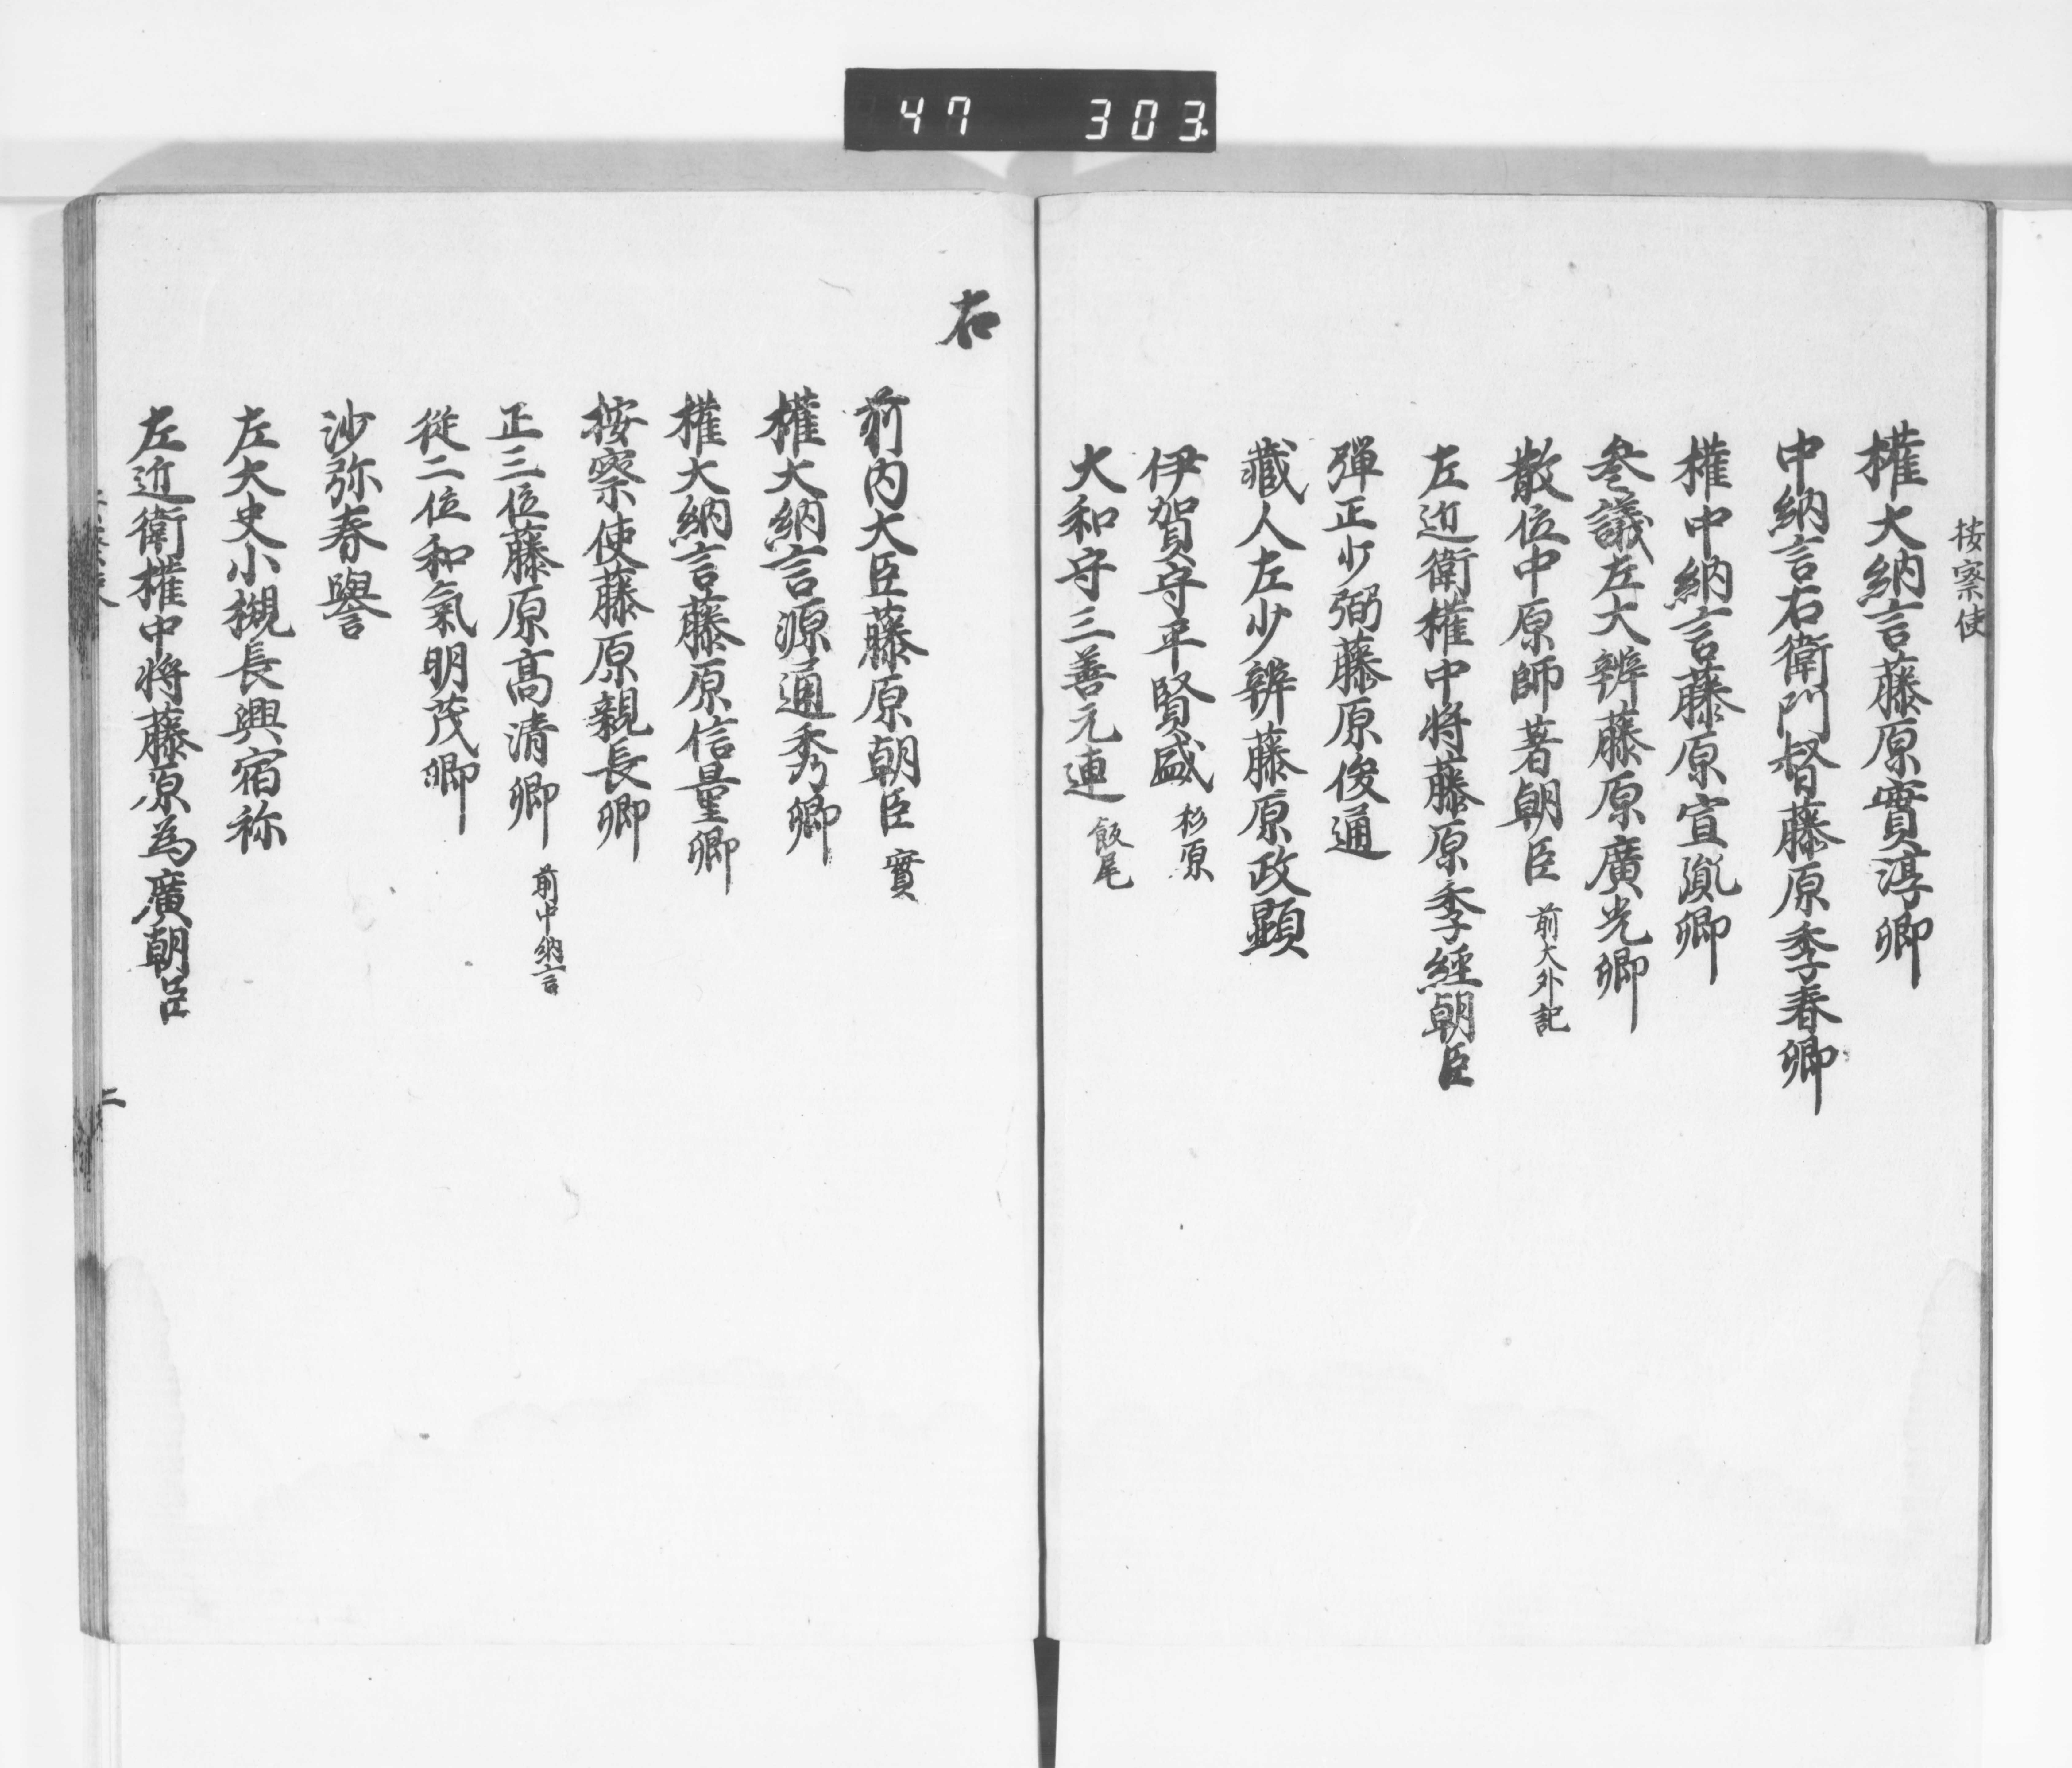 47 303
按察使
權大納言藤原實淳卿
中納言右衛門督藤原季春卿
權中納言藤原宣胤卿
参議左大辨藤原廣光卿
散位中原師著朝臣 前大外記
左近衛權中将藤原季經朝臣
彈正少弼藤原俊通
藏人左少辨藤原政顕
伊賀守平賢盛 杉原
大和守三善元連 飯尾
右
前内大臣藤原朝臣 實
權大納言源通秀卿
權大納言藤原信量卿
按察使藤原親長卿
正三位藤原高清卿 前中納言
従二位和氣明茂卿
沙弥春譽
左大史小槻長興宿祢
左近衛權中将藤原為廣朝臣
二